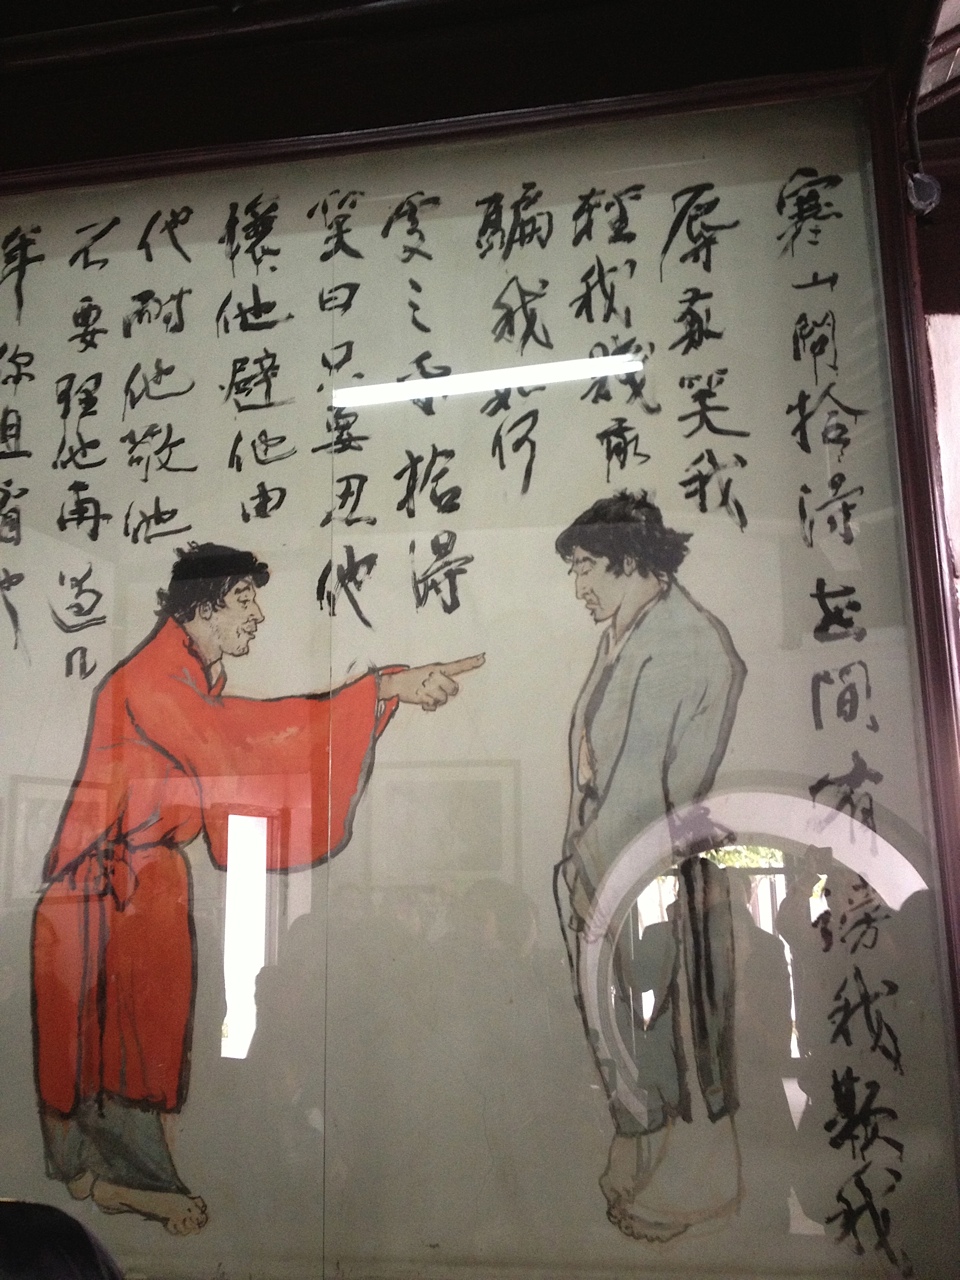 寒山問拾得世間有謗我欺我
辱我笑我
輕我賤我
騙我如何
處之乎拾得
笑曰只要忍他
讓他避他由
他耐他敬他
不要理他再過几
年你且看他